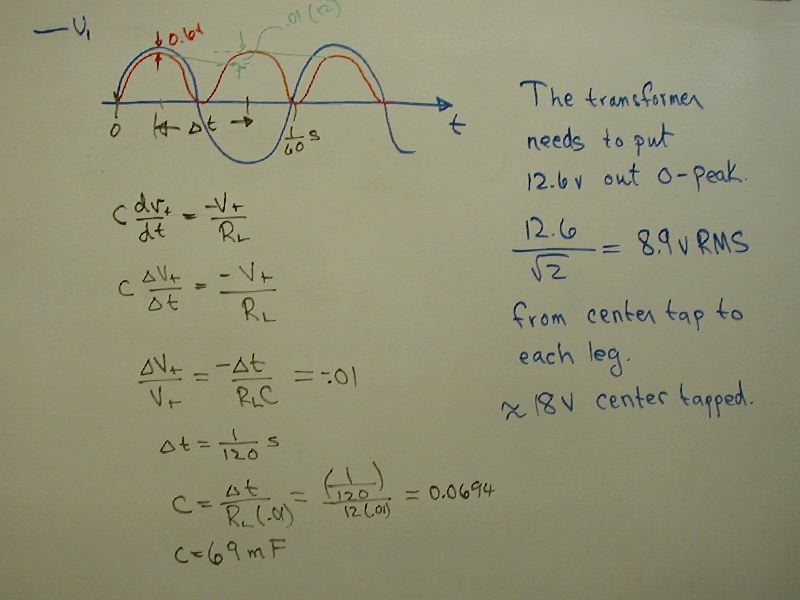 — V₁
0.6v
.01(12)
0
Δt
1/60 s
t
C dv₊/dt = -V₊/R_L
C ΔV₊/Δt = -V₊/R_L
ΔV₊/V₊ = -Δt/R_LC = -.01
Δt = 1/120 s
C = Δt/R_L(.01) = (1/120)/12(.01) = 0.0694
C = 69mF
The transformer
needs to put
12.6v out 0-peak.
12.6/√2 = 8.9v RMS
from center tap to
each leg.
≈ 18v center tapped.